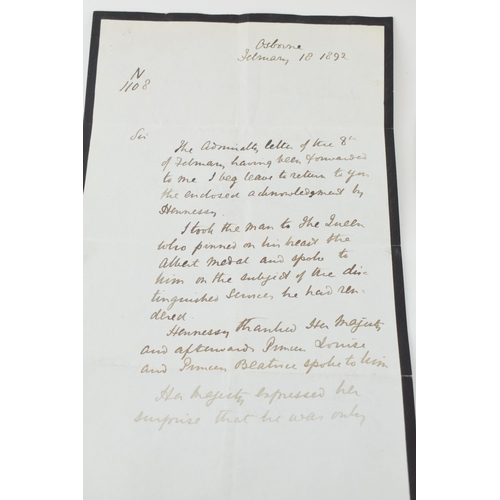 Osborne
February 18 1892
N
1108
Sir
The Admiralty letter of the 8th
of February, having been forwarded
to me I beg leave to return to you
the enclosed acknowledgment by
Hennessy.
I took the man to The Queen
who pinned on his breast the
Albert Medal and spoke to
him on the subject of the dis-
tinguished services he had ren-
dered.
Hennessy thanked Her Majesty
and afterwards Princess Louise
and Princess Beatrice spoke to him
Her Majesty expressed her
surprise that he was only